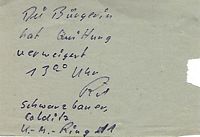 Die Bürgerin
hat Quittung
verweigert
13⁰⁰ Uhr
Schwarzbauer,
Colditz
K.-M.-Ring 11